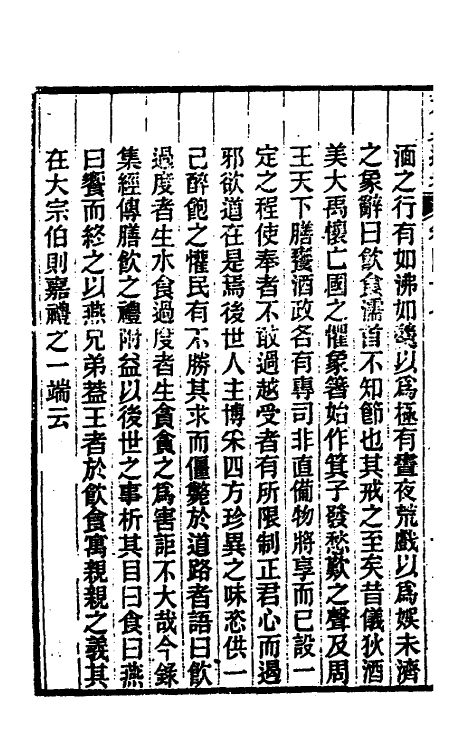 湎之行有如沸如羹以爲極有晝夜荒戲以爲娛未濟
之象辭曰飲食濡首不知節也其戒之至矣昔儀狄酒
美大禹懷亡國之懼象箸始作箕子發愁歎之聲及周
王天下膳羞酒政各有專司非直備物將享而已設一
定之程使奉者不敢過越受者有所限制正君心而遏
邪欲道在是焉後世人主博采四方珍異之味恣供一
己醉飽之懽民有不勝其求而僵斃於道路者語曰飲
過度者生水食過度者生貪貪之爲害詎不大哉今錄
集經傳膳飲之禮附益以後世之事析其目曰食曰燕
曰饗而終之以燕兄弟葢王者於飲食寓親親之義其
在大宗伯則嘉禮之一端云